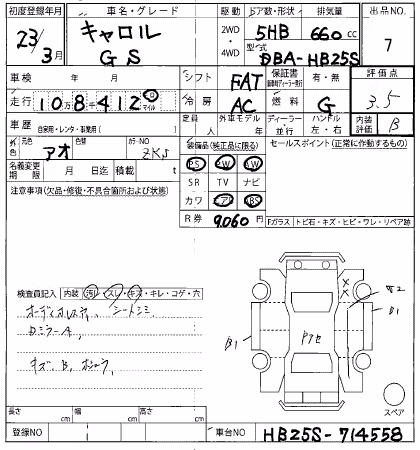 初度登録年月 車名・グレード 駆動 ドア数・形状 排気量 出品NO
23/3月 キャロル GS 2WD ・ 4WD 5HB 660cc 7
型式 DBA-HB25S
車検 年 月 シフト FAT 保証書 有・無 評価点
走行 10万8千412 マイル 冷房 AC 燃料 G 3.5
車歴 自家用・レンタ・事業用( ) 定員 人 外車モデル 年 ディーラー・並行 ハンドル 左・右 内装評価 B
外色 元色 アオ 色替 カラーNO ZKS 装備品(純正品に限る) セールスポイント(正常に作動するもの)
名義変更期限 月 日迄 積載 t PS PW AW
注意事項(欠品・修復・不具合箇所および状態) SR TV ナビ
カワ エアB ABS
R券 9060円 Fガラス トビ石・キズ・ヒビ・ワレ・リペア跡
検査員記入 内装 汚レ・スレ・キズ・キレ・コゲ・穴
シートシミ
DミラーA
キズ、B、
B1 Pアセ B1
スペア
長さ cm 幅 cm 高さ cm
登録NO 車台NO HB25S-714558